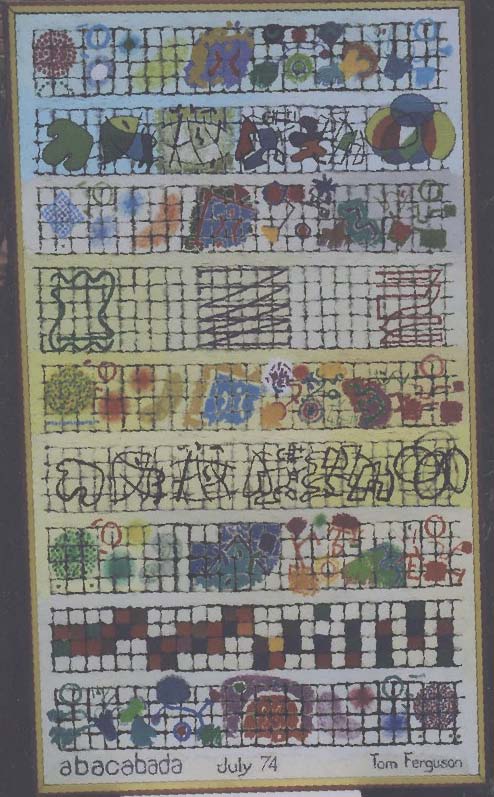 abacabada July 74 Tom Ferguson